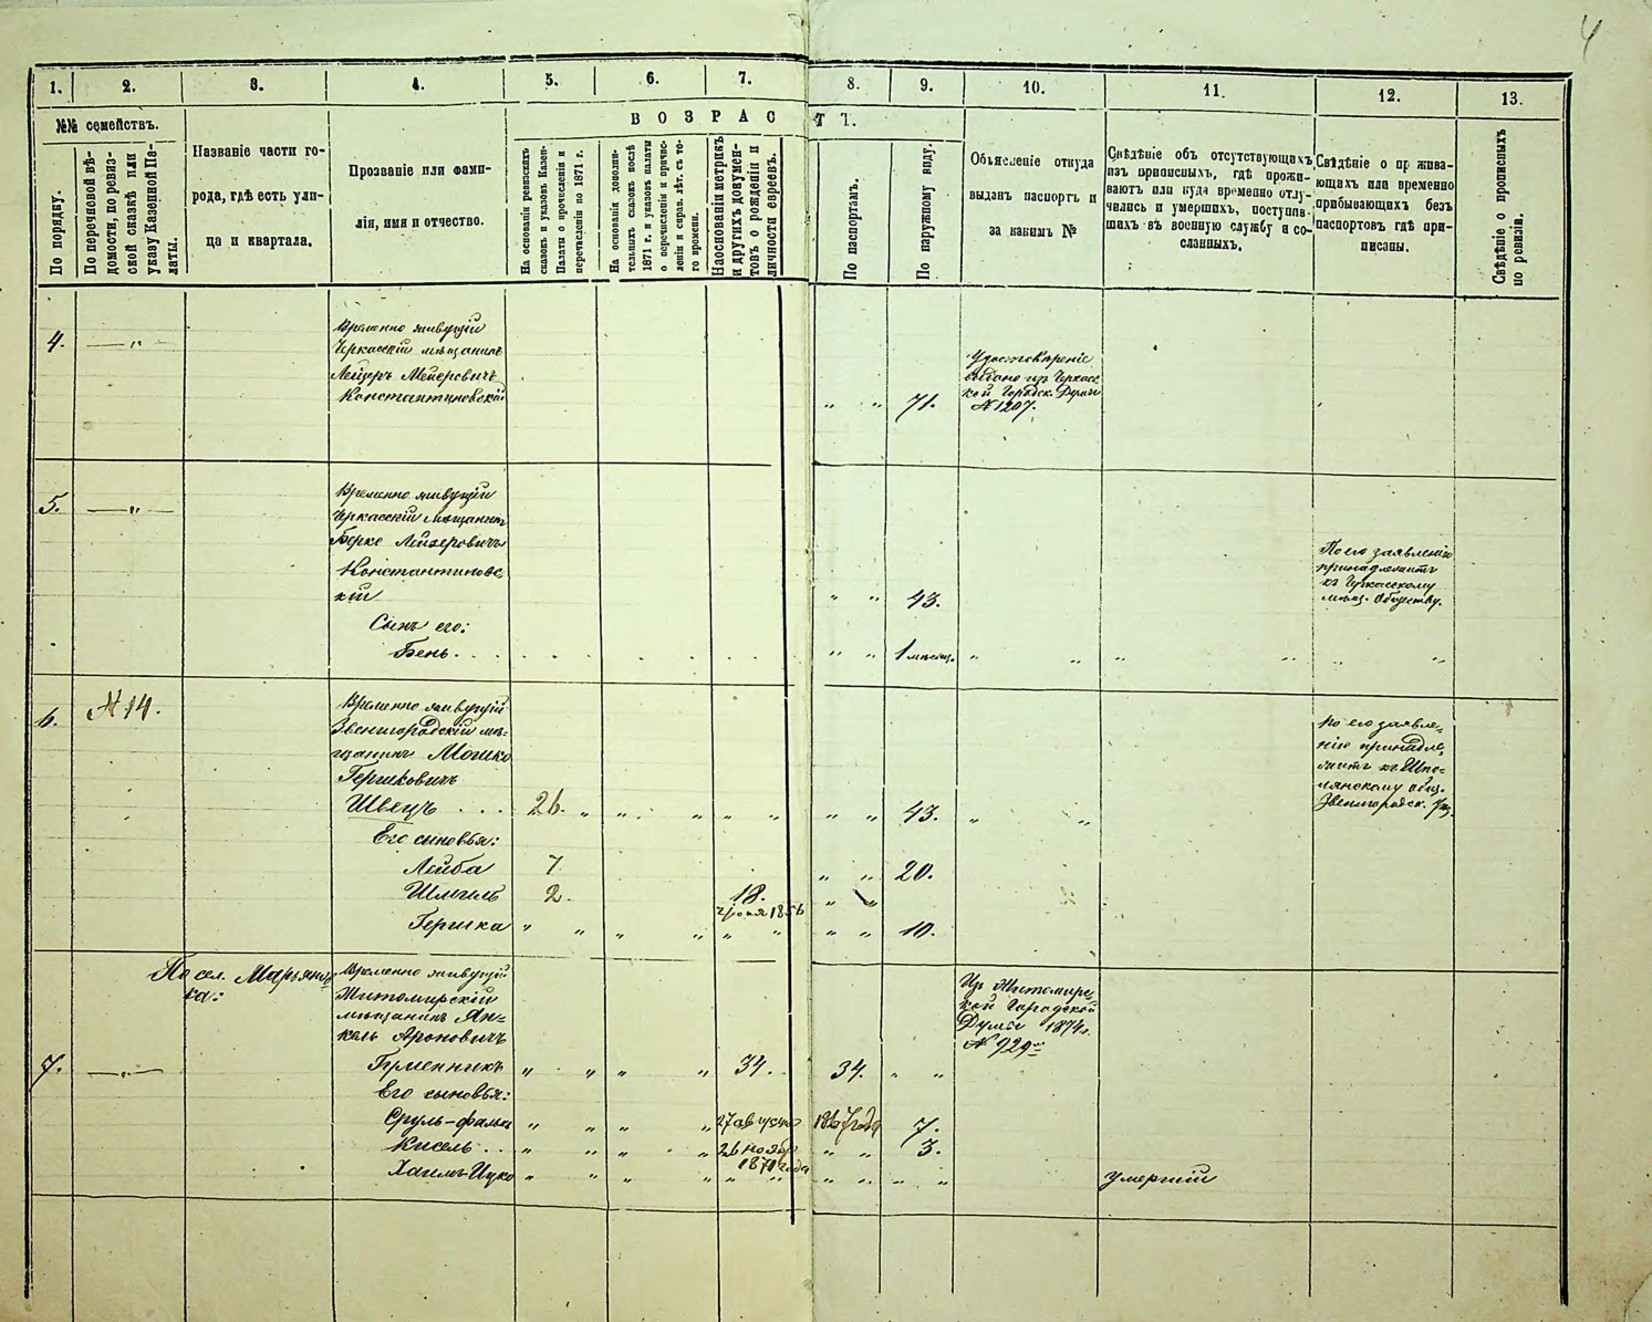 4
1. 2. 3. 4. 5. 6. 7. 8. 9. 10. 11. 12. 13.
№№ семействъ.
ВОЗРАСТЪ.
По порядку.
По перечневой вѣ-
домости, по ревиз-
ской сказкѣ или
указу Казенной Па-
латы.
Названіе части го-
рода, гдѣ есть ули-
ца и квартала.
Прозваніе или фами-
лія, имя и отчество.
На основаніи ревизскихъ
сказокъ и указовъ Казен.
Палаты о причисленіи и
перечисленіи по 1871 г.
На основаніи дополни-
тельныхъ сказокъ послѣ
1871 г. и указовъ палаты
о перечисленіи и причис-
леніи и справ. лѣт. съ то-
го времени.
Наоснованіи метрикъ
и другихъ докумен-
товъ о рожденіи и
личности евреевъ.
По паспортамъ.
По наружному виду.
Объясненіе откуда
выданъ паспортъ и
за какимъ №
Свѣдѣніе объ отсутствующихъ
изъ приписныхъ, гдѣ прожи-
ваютъ или куда временно отлу-
чились и умершихъ, поступив-
шихъ въ военную службу и со-
сланныхъ.
Свѣдѣніе о прожива-
ющихъ или временно
прибывающихъ безъ
паспортовъ гдѣ при-
писаны.
Свѣдѣніе о прописныхъ
по ревизіи.
4. — " —
Временно живущій
Черкасскій мѣщанинъ
Лейзеръ Мейеровичъ
Константиновскій
" " 71.
Удостовѣреніе
выдано изъ Черкас
кой Городск. Думы
№ 1207.
5. — " —
Временно живущій
Черкасскій мѣщанинъ
Берко Лейзеровичъ
Константиновс
кій
" " 43.
По его заявленію
принадлежитъ
къ Черкасскому
мѣщ. Обществу.
Сынъ его:
Бень . . . . . . . . . . " " 1 мѣсяц. " " " " " "
6. № 14.
Временно живущій
Звенигородскій мѣ-
щанинъ Мошко
Гершковичъ
Швецъ . . . 26. " " " " " " " 43. " "
По его заявле-
нію принадле-
житъ къ Шпо-
лянскому общ.
Звенигородск. уѣз.
Его сыновья:
Лейба 7 " " 20.
Шмиль 2. 18. " "
Гершка " " " " " " " " 10.
По сел. Марьянов
ка:
Временно живущій
Житомирскій
мѣщанинъ Ян-
кель Ароновичъ
7. — " — Гуменникъ " " " " 34. 34. " "
Изъ Житомирс
кой Городской
Думы 1874 г.
№ 929
Его сыновья:
Сруль-фалик " " " " 27 августа 1867 года 7.
Кисель . . " " " " 26 ноября " " 3.
1870 года
Хаимъ Ицко " " " " " " " " " " умершій